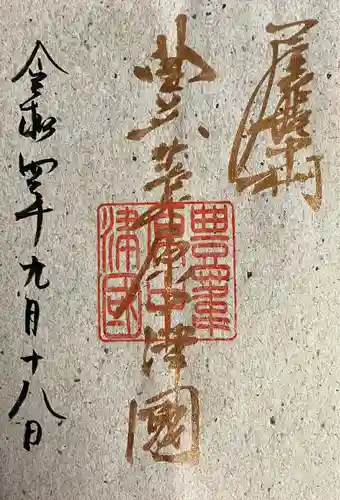 豊葦原中津國
豊葦
原中
津國
令和四年九月十八日